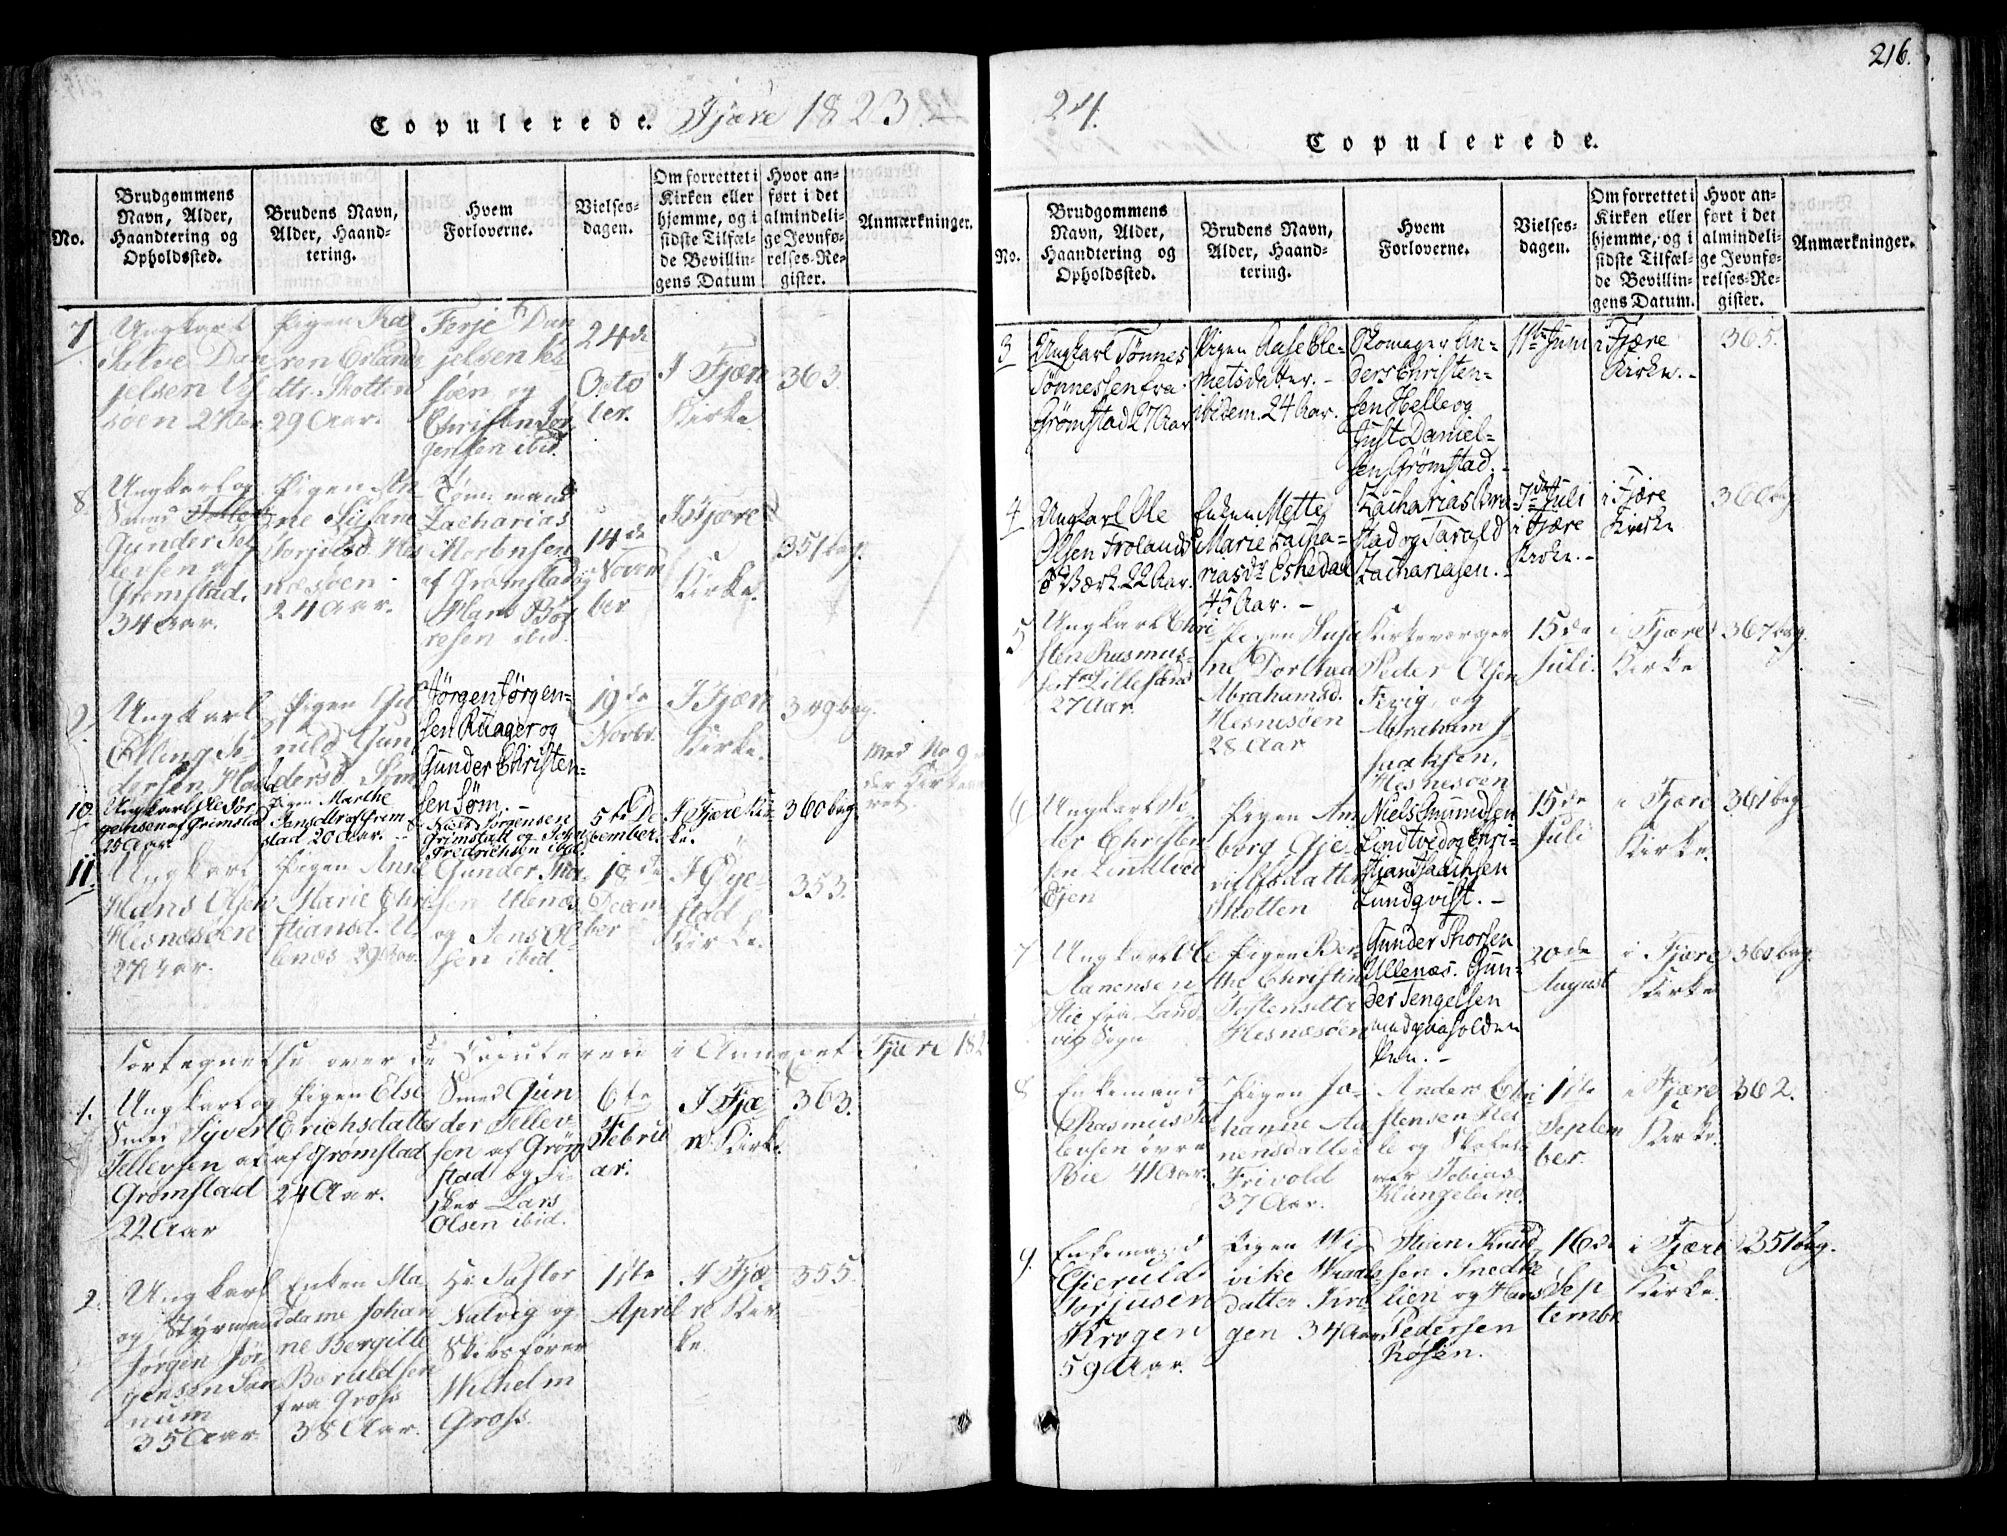 216.
Copulerede. Fjære 1823
24.
Copulerede.
No.
Brudgommens
Navn, Alder,
Haandtering og
Opholdssted.
Brudens Navn,
Alder, Haand-
tering.
Hvem
Forloverne.
Vielses-
dagen.
Om forrettet i
Kirken eller
hjemme, og i
sidste Tilfæl-
de Bevillin-
gens Datum
Hvor an-
ført i det
almindeli-
ge Jevnfø-
relses-Re-
gister.
Anmærkninger.
7
Ungkarl
Dan
jelsen
söen 27 Aar
Pigen Ka
ren
dtr. Skotten
29 Aar.
Terje Dan
jelsen
söen, og
Christen Jør
gensen ibid.
24de
Octo
ber.
I Fjære
Kirke
363.
8
Ungkarl og
Smed
Gunder Tel
lefsen af
Grømstad.
34 Aar.
Pigen An
ne Susane
næsöen
24 Aar.
Tømmermand
Zacharias
Mortensen
af Grømstad og
Hans Bør
resen ibid.
14de
Novem
ber
I Fjære
Kirke.
351 bag.
9
Ungkarl
Elling Pe
dersen
Pigen Gu
nild Gun
dersd. Søm
Jørgen Jørgen-
sen Ruager og
Gunder Christen-
sen Søm. -
19de
Novbr.
I Fjære
Kirke.
349 bag.
Med No 9
10.
Ungkarl Ole Jør
gensen af Grimstad
25 Aar
Pigen Marthe
Jensdtr af Grim
stad 20 Aar.
Niels Jørgensen
Grimstad og John
Fredrichsen ibid.
5te De
cember.
I Fjære Kir
ke.
360 bag
11.
Ungkarl
Hans Olsen
Hesnæsöen
27 Aar.
Pigen Anne
Marie Chri
stiansd. U
lenæs 29 Aar
Gunder Tho
sen Ulenæs
og Jens Ol
sen ibid.
18de
Decem
ber
I Øye-
stad
Kirke.
353.
Fortegnelse over de Copulerede i Annexet Fjære 182
1.
Ungkarl og
Smed Syvert
Tellefsen af
Grømstad
22 Aar
Pigen Else
Erichsdatter
af Grømstad
24 Aar.
Smed Gun
der Tellev
sen af Grøm
stad og Fi
sker Lars
Olsen ibid.
6te
Febru
ar.
I Fjæ
re Kirke.
363.
2.
Ungkarl
og Styrmand
Jørgen Jør
gensen San
num
35 Aar
Enken Ma
dame Johan
ne Bergitte
Boruldsen
fra Gross
38 Aar.
Hr. Pastor
Natvig og
Skibsfører
Wilhelm
Gross.
11te
April
I Fjæ
re Kir
ke.
355.
No.
Brudgommens
Navn, Alder,
Haandtering og
Opholdssted.
Brudens Navn,
Alder, Haand-
tering.
Hvem
Forloverne.
Vielses-
dagen.
Om forrettet i
Kirken eller
hjemme, og i
sidste Tilfæl-
de Bevillin-
gens Datum.
Hvor an-
ført i det
almindeli-
ge Jevnfø-
relses-Re-
gister.
Anmærkninger.
3
Ungkarl Tønnes
Tønnessen fra
Grømstad 27 Aar
Pigen Aase Cle-
metsdatter. -
ibidem. 24 Aar.
Skomager An-
ders Christen-
sen Helle og
Just Daniel-
sen Grømstad. -
11te Juni
i Fjære
Kirke. -
365.
4
Ungkarl Ole
Olsen Frolands
Værk 22 Aar.
Enken Mette
Marie Zacha-
riasdr Eshedal
45 Aar. -
Zacharias Bra
stad og Tarald
Zachariasen. -
7de Juli
i Fjære
Kirke. -
i Fjære
Kirke
360 bag
5
Ungkarl Chri
sten Rasmus-
sen Lillesand
27 Aar.
Pigen
ne Dorthea
Abrahamsd.
Hesnesöen
28 Aar
Kirkeværger
Peder Olsen
Fevig, og
Abraham I
saaksen,
Hesnesöen
15de
Juli.
i Fjære
Kirke
367 bag.
6
Ungkarl Pe
der Christen
sen Lindtved
Eyen
Pigen An
borg Gje
rulfsdatter
Skotten
Niels Smundsen
Lindtved og Chri-
stian Isaachsen
Lundqvist. -
15de
Juli
i Fjære
Kirke.
361 bag
7
Ungkarl Ole
Aanensen
Stie fra Land
vig Sogn
Pigen Ber
the Christin
Tostensdtr
Hesnæsöen
Gunder Thorsen
Ullenæs. Gun-
der Tengelsen
20de
August
i Fjære
Kirke
360 bag.
8
Enkemand
Rasmus
lensen øvre
Bie 41 Aar.
Pigen Jo-
hanne Aa
nensdatter
Frivold
37 Aar.
Anders Chri
stensen Hel
le og
Tobias
Klungeland.
11te
Septem
ber.
i Fjære
Kirke.
362.
9.
Enkemand
Gjeruld
Torjusen
Krogen
59 Aar.
Pigen
vike
datter Kro
gen 34 Aar.
Stian Knud
sen Snedke
lien og Hans
Pedersen
Røsen.
16de
Sep
tember
i Fjære
Kirke.
351 bag.